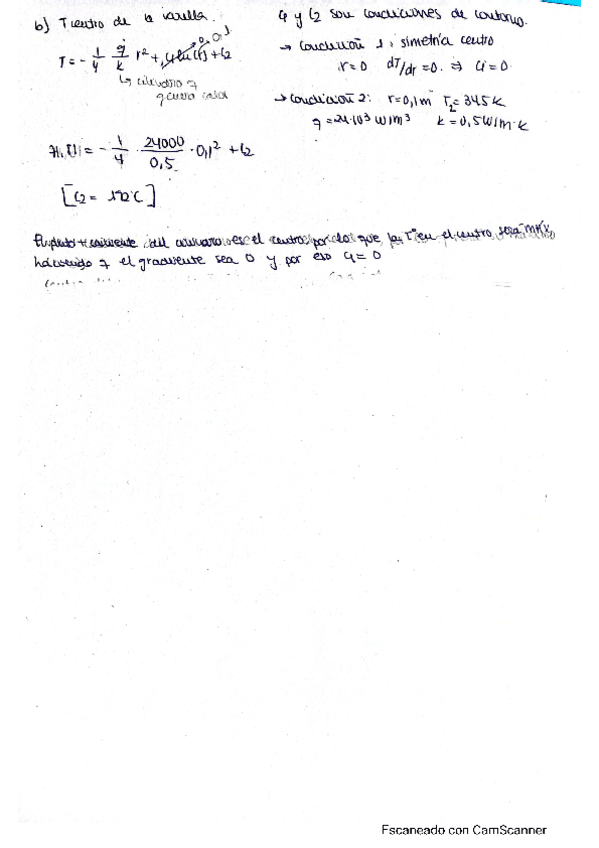 b) T centro de la varilla.
T = - 1/4 q̇/k r² + C1 ln(r) + C2
↳ cilindrico 7
genera calor
C1 y C2 son condiciones de contorno.
→ Condición 1: simetría centro
r=0 dT/dr =0. ⇒ C1=0
→ Condición 2: r=0,1m T2= 345 K
q̇ =24·10³ W/m³ k=0,5W/m·K
= - 1/4 · 24000/0,5 · 0,1² + C2
[C2 = 192°C]
El punto + caliente del es el centro, por lo que la Tª en el centro será MÁX,
haciendo q el gradiente sea 0 y por eso C1=0
Escaneado con CamScanner